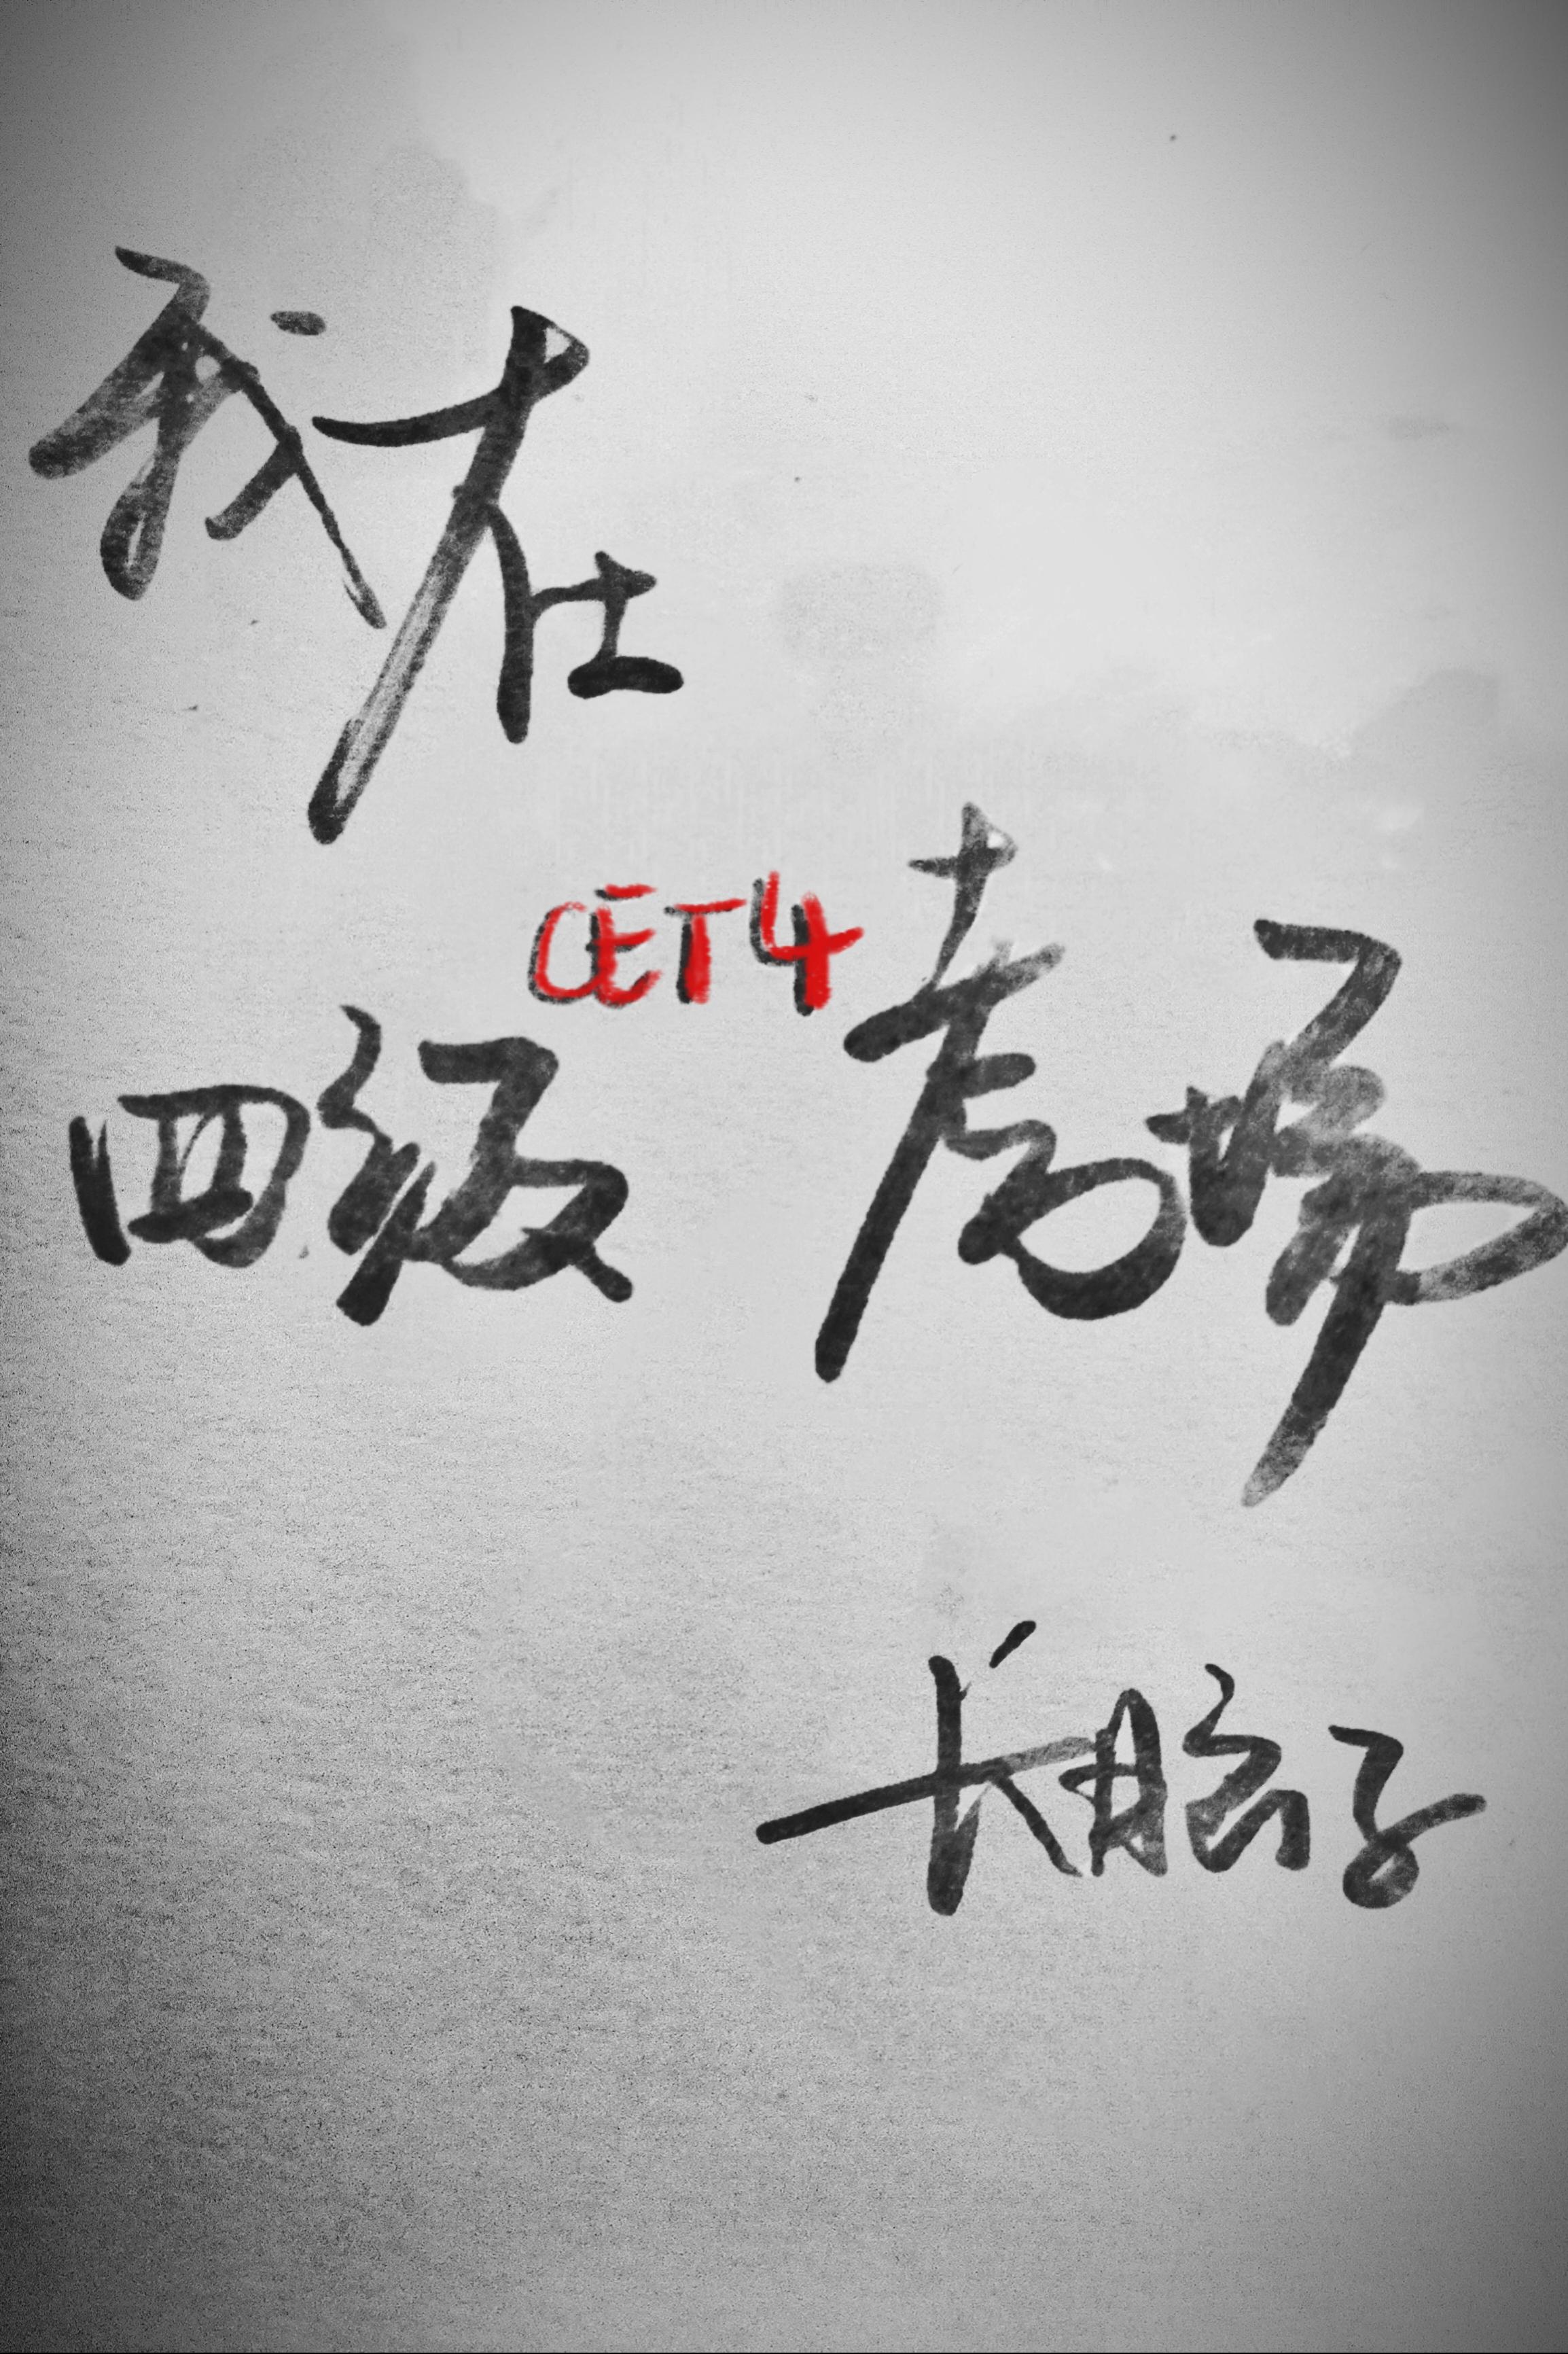 我在
CET4
四级考场
长脑子